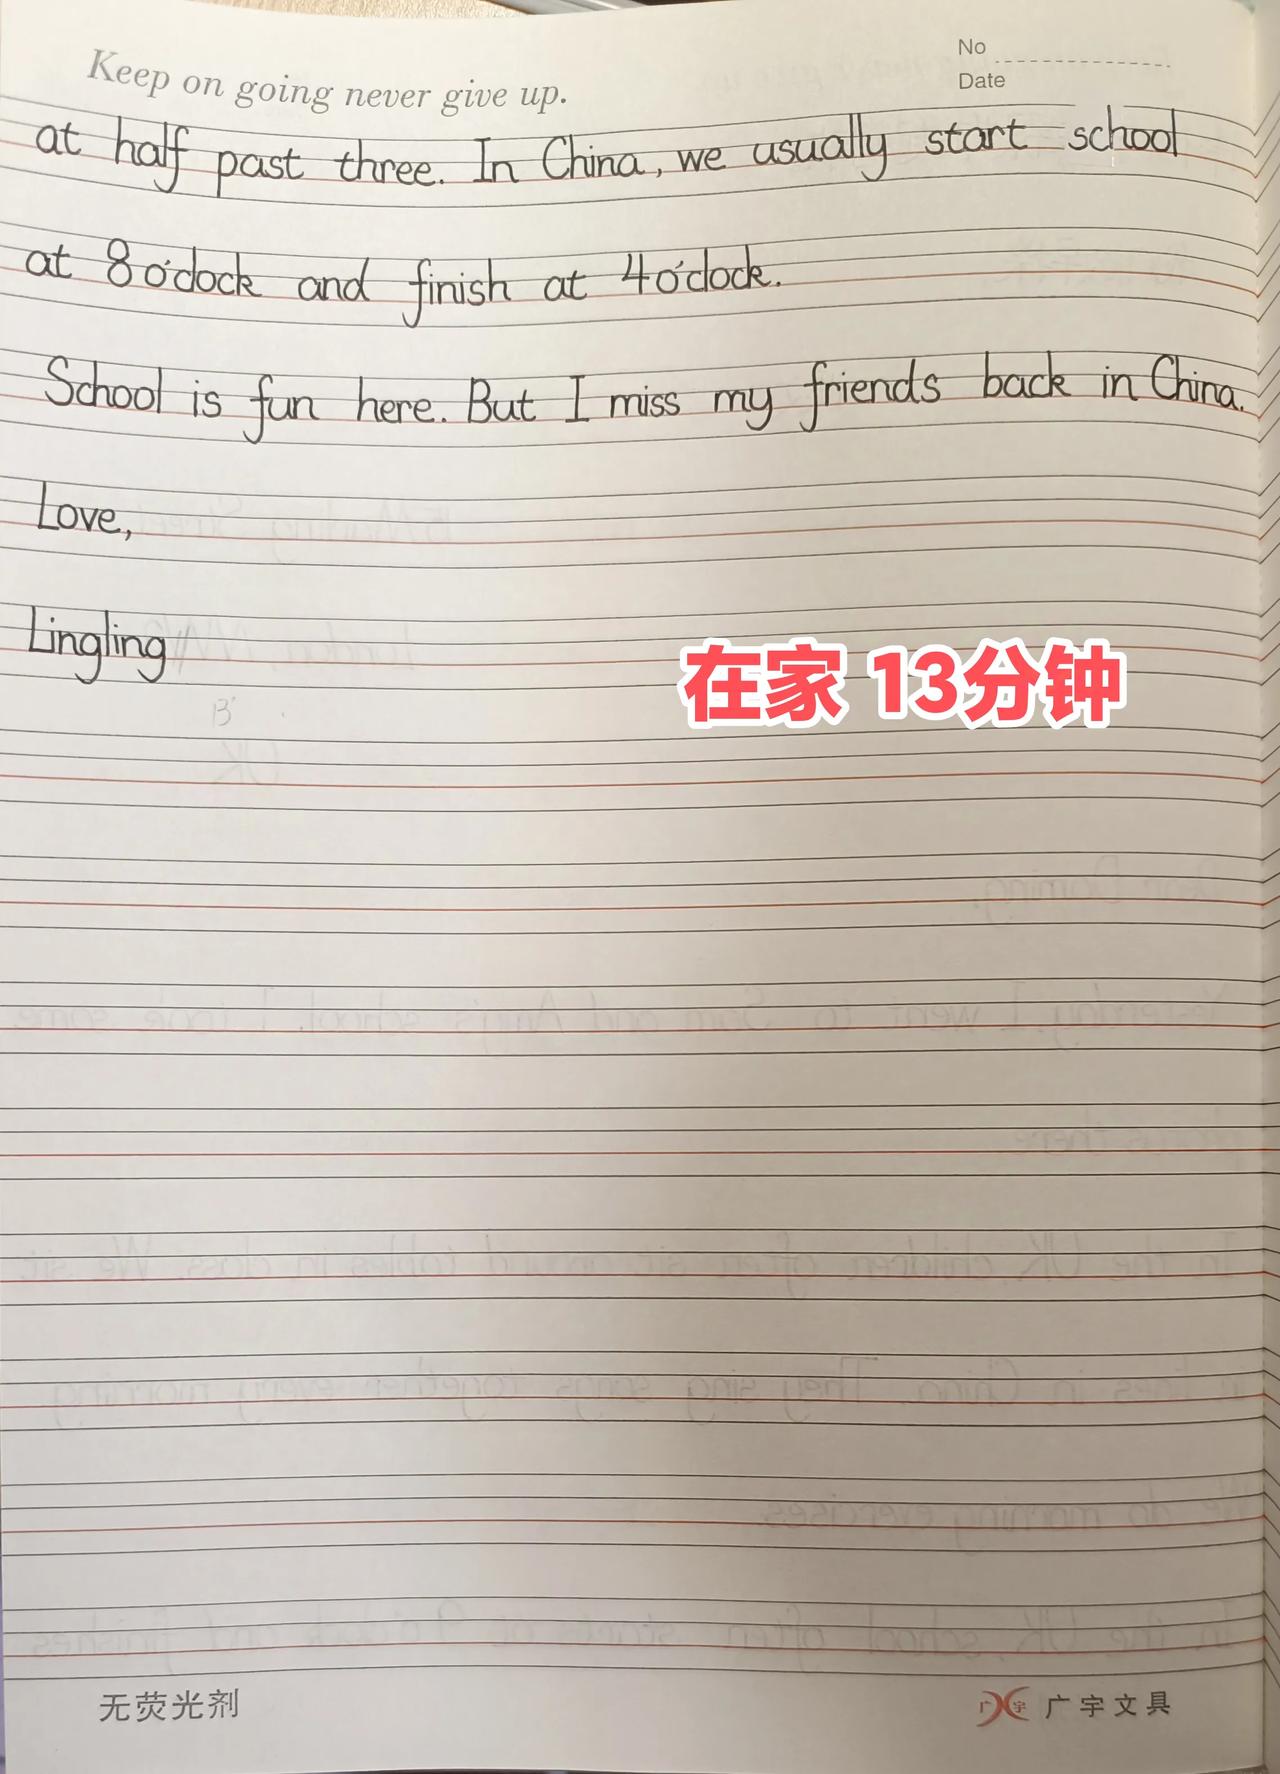 Keep on going never give up.
No
Date
at half past three. In China, we usually start school
at 8 o'clock and finish at 4 o'clock.
School is fun here. But I miss my friends back in China.
Love,
Lingling
在家 13分钟
13'
无荧光剂
广宇文具